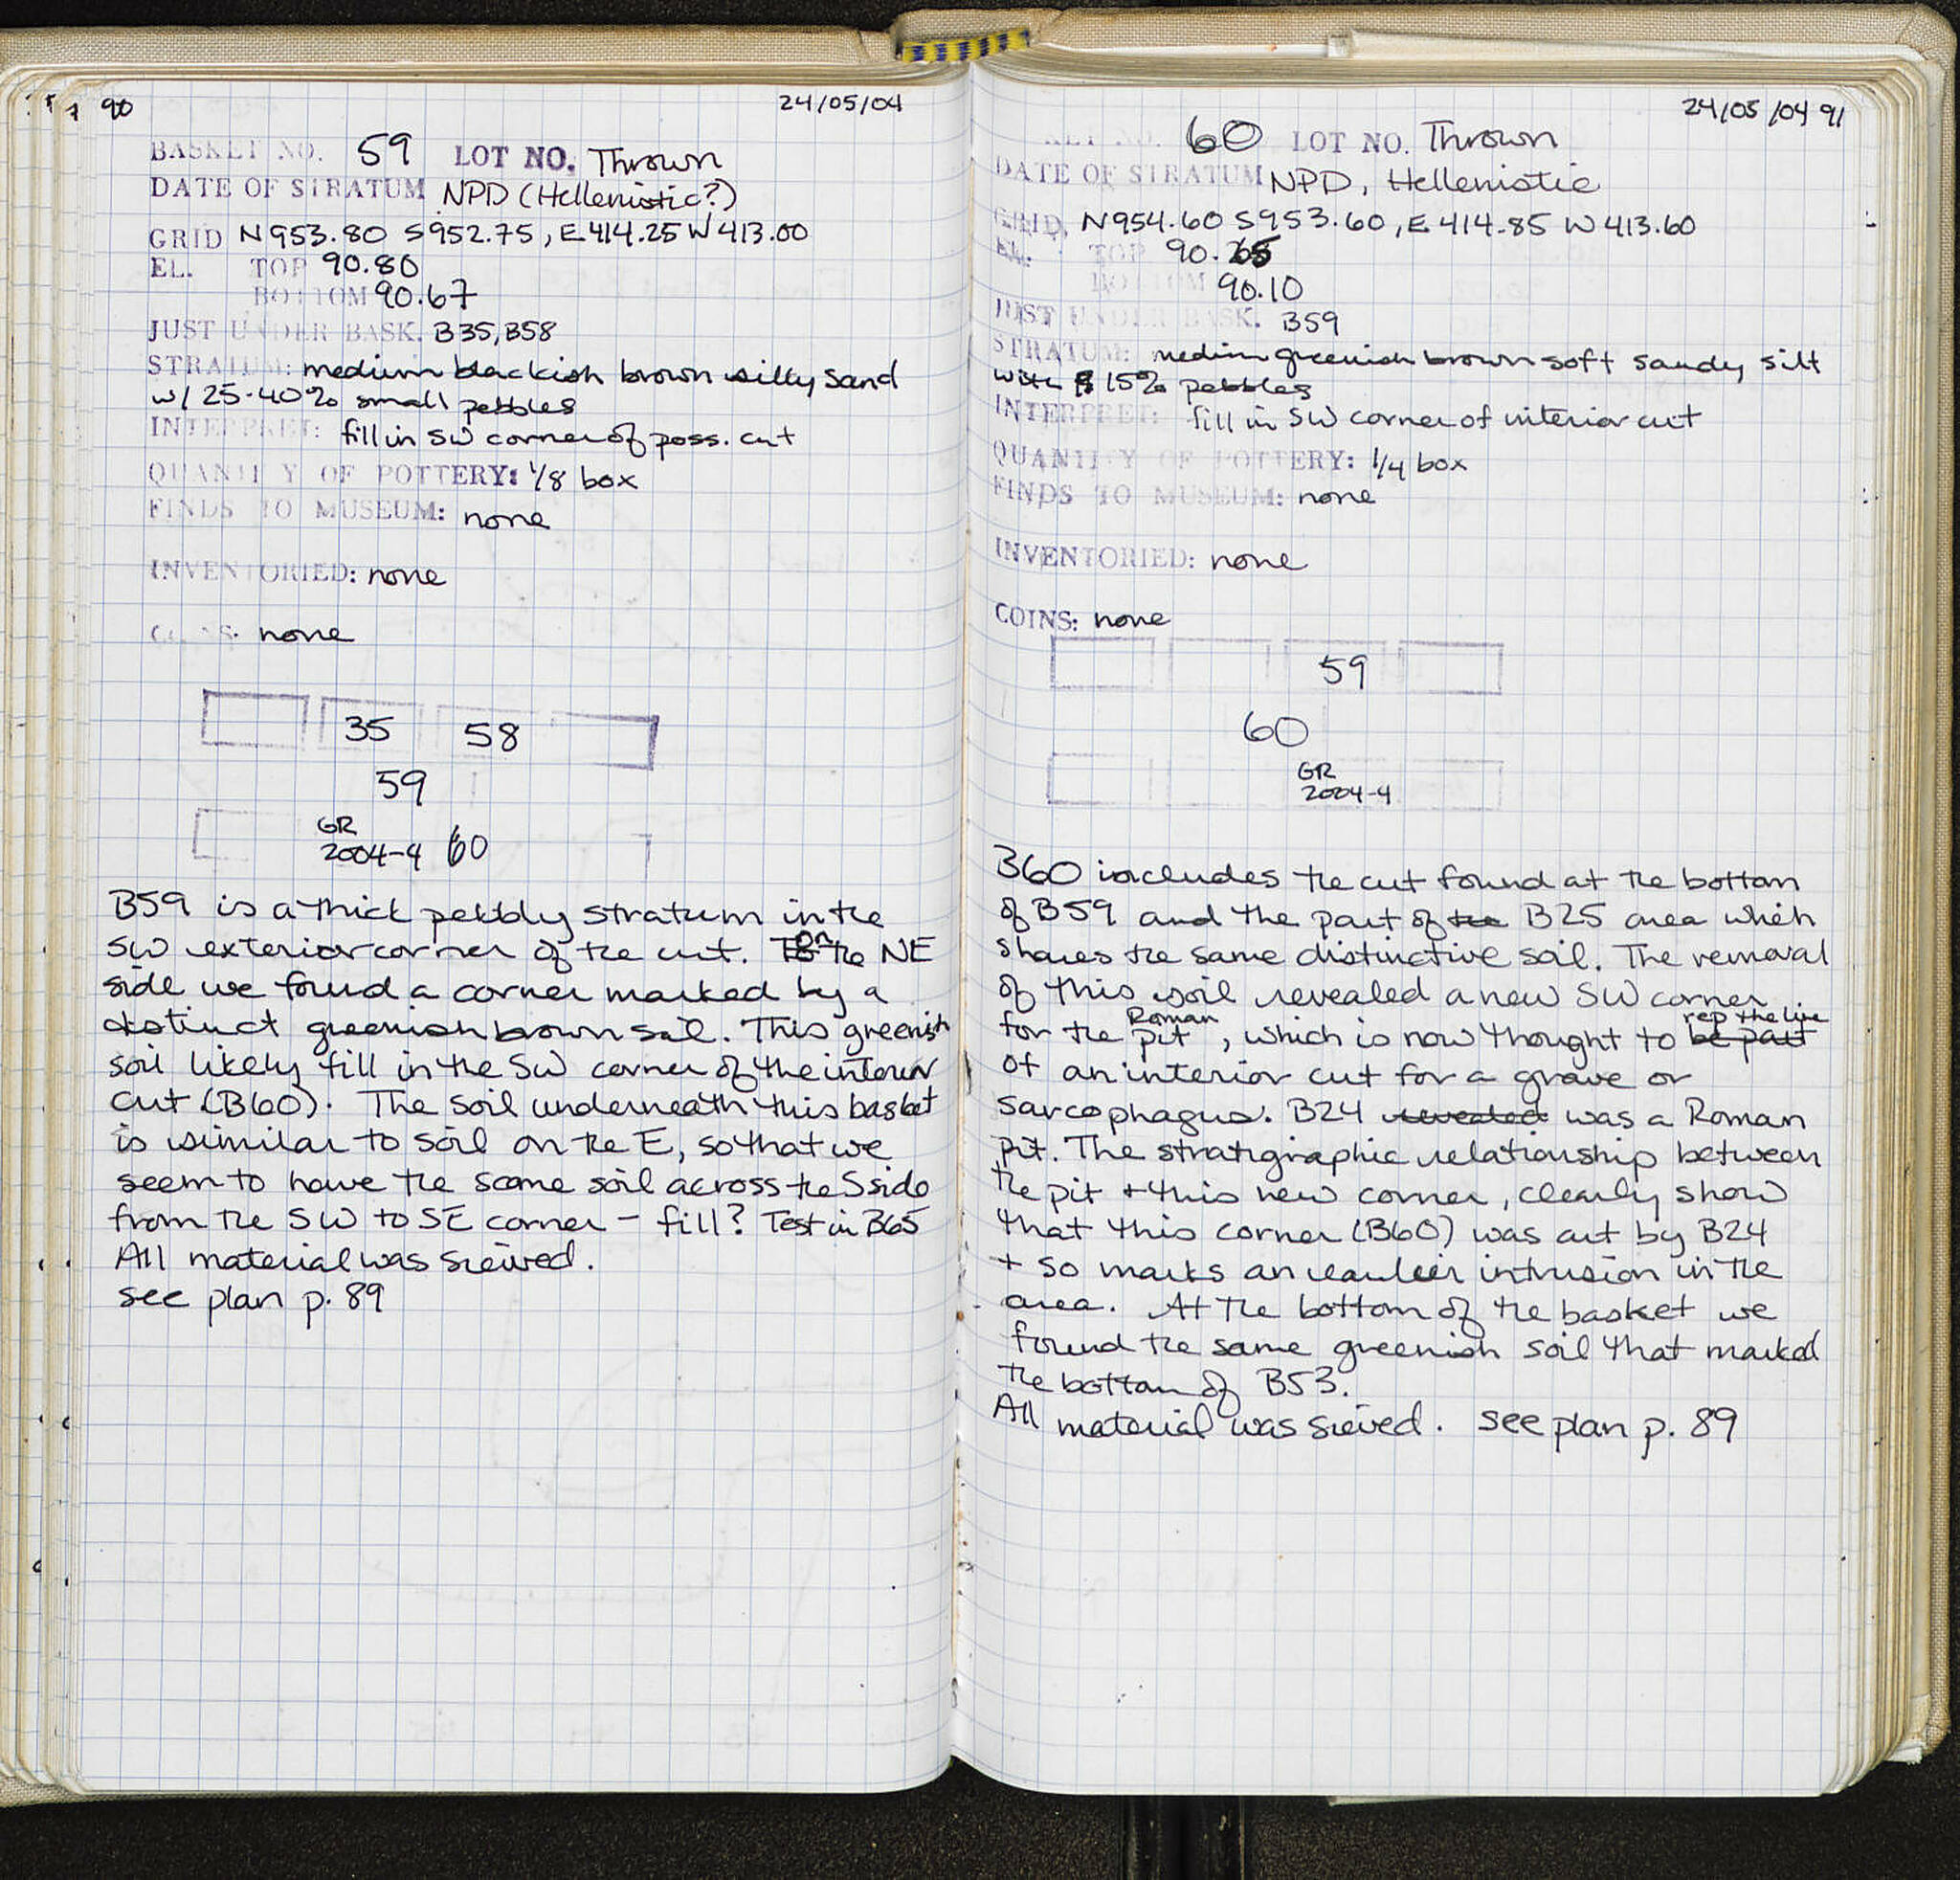 90
24/05/04
BASKET NO. 59 LOT NO. Thrown
DATE OF STRATUM NPD (Hellenistic?)
GRID N953.80 S952.75, E414.25 W413.00
EL. TOP 90.80
BOTTOM 90.67
JUST UNDER BASK. B35, B58
STRATUM: medium blackish brown silty sand
w/ 25-40% small pebbles
INTERPRET: fill in SW corner of poss. cut
QUANTITY OF POTTERY: 1/8 box
FINDS TO MUSEUM: none
INVENTORIED: none
COINS: none
35 58
59
GR
2004-4 60
B59 is a thick pebbly stratum in the
SW exterior corner of the cut. To on the NE
side we found a corner marked by a
distinct greenish brown soil. This greenish
soil likely fill in the SW corner of the interior
cut (B60). The soil underneath this basket
is similar to soil on the E, so that we
seem to have the same soil across the S side
from the SW to SE corner - fill? Test in B65
All material was sieved.
see plan p. 89
24/05/04 91
KET NO. 60 LOT NO. Thrown
DATE OF STRATUM NPD, Hellenistic
GRID. N954.60 S953.60, E414.85 W413.60
EL. TOP 90.65
BOTTOM 90.10
JUST UNDER BASK. B59
STRATUM: medium greenish brown soft sandy silt
with 15% pebbles
INTERPRET: fill in SW corner of interior cut
QUANTITY OF POTTERY: 1/4 box
FINDS TO MUSEUM: none
INVENTORIED: none
COINS: none
59
60
GR
2004-4
B60 includes the cut found at the bottom
of B59 and the part of the B25 area which
shares the same distinctive soil. The removal
of this soil revealed a new SW corner
for the Roman pit, which is now thought to be part rep the line
of an interior cut for a grave or
sarcophagus. B24 revealed was a Roman
pit. The stratigraphic relationship between
the pit + this new corner, clearly show
that this corner (B60) was cut by B24
+ so marks an earlier intrusion in the
area. At the bottom of the basket we
found the same greenish soil that marked
the bottom of B53.
All material was sieved. see plan p. 89